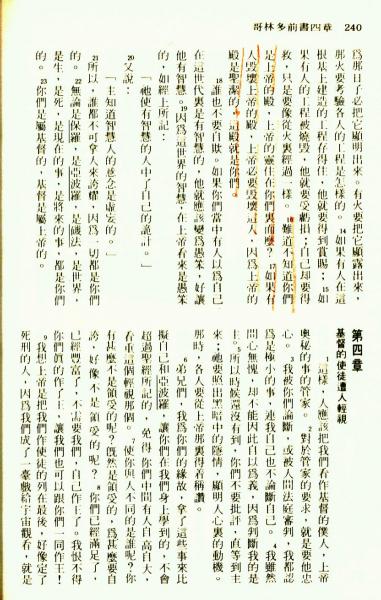 240　哥林多前書四章
為那日子必把它顯明出來。有火要把它顯露出來，
那火要考驗各人的工程是怎樣的。14如果有人在這
根基上建造的工程存得住，他就要得到賞賜；15如
果有人的工程被燒毀，他就要受虧損；自己却要得
救，只是要像從火裏經過一樣。16難道不知道你們
是上帝的殿，上帝的靈住在你們裏面麼？17如果有
人毀壞上帝的殿，上帝必要毀壞這人，因爲上帝的
殿是聖潔的，這殿就是你們。
18誰也不要自欺。如果你們當中有人以爲自己
在這世代裏是有智慧的，他就應該變爲愚笨，好讓
他有智慧。19因爲這世界的智慧，在上帝看來是愚笨
的，如經上所記：
「祂使有智慧的人中了自己的詭計。」
20又說：
「主知道智慧人的意念是虛妄的。」
21所以，誰都不可拿人來誇耀，因爲一切都是你們
的。22無論是保羅，是亞波羅，是磯法，是世界，
是生，是死，是現在的事，是將來的事，都是你們
的。23你們是屬基督的，基督是屬上帝的。
第四章
基督的使徒遭人輕視
1這樣，人應該把我們看作基督的僕人，上帝
奧秘的事的管家。2對於管家的要求，就是要他忠
心。3我被你們論斷，或被人間法庭審判，我都認
爲是極小的事，連我自己也不論斷自己。4我雖然
問心無愧，却不能因此自以爲義，因爲判斷我的是
主。5所以時候還沒有到，你們不要批評，直等到主
來；祂要照出黑暗中的隱情，顯明人心裏的動機。
那時，各人要從上帝那裏得着稱讚。
6弟兄們，我爲你們的緣故，拿了這些事來比
擬自己和亞波羅，讓你們在我們身上學到的，不會
超過聖經所記的，免得你們中間有人自高自大，
看重這個輕視那個。7使你與人不同的是誰呢？你
有甚麽不是領受的呢？旣然是領受的，爲甚麽要自
誇，好像不是領受的呢？8你們已經滿足了，
已經豐富了，不需要我們，自己作王了。我恨不得
你們眞的作了王，讓我們也可以跟你們一同作王！
9我想上帝是把我們作使徒的列在最後，好像定了
死刑的人，因爲我們成了一臺戲給宇宙觀看，就是